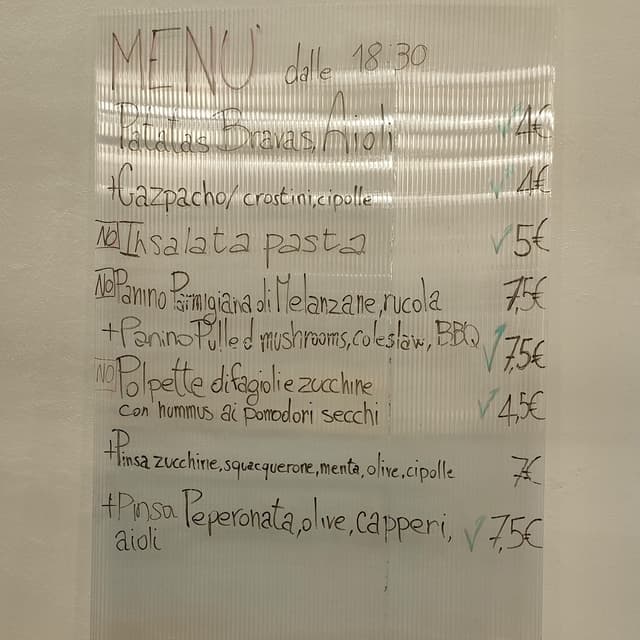 MENU' dalle 18:30
Patatas Bravas, Aioli √ 4€
+Gazpacho/ crostini, cipolle √ 4€
NO Insalata pasta √ 5€
NO Panino Parmigiana di Melanzane, rucola 7,5€
+Panino Pulled mushrooms, coleslaw, BBQ √ 7,5€
NO Polpette di fagioli e zucchine
con hummus ai pomodori secchi √ 4,5€
+Pinsa zucchine, squacquerone, menta, olive, cipolle 7€
+Pinsa Peperonata, olive, capperi, √ 7,5€
aioli